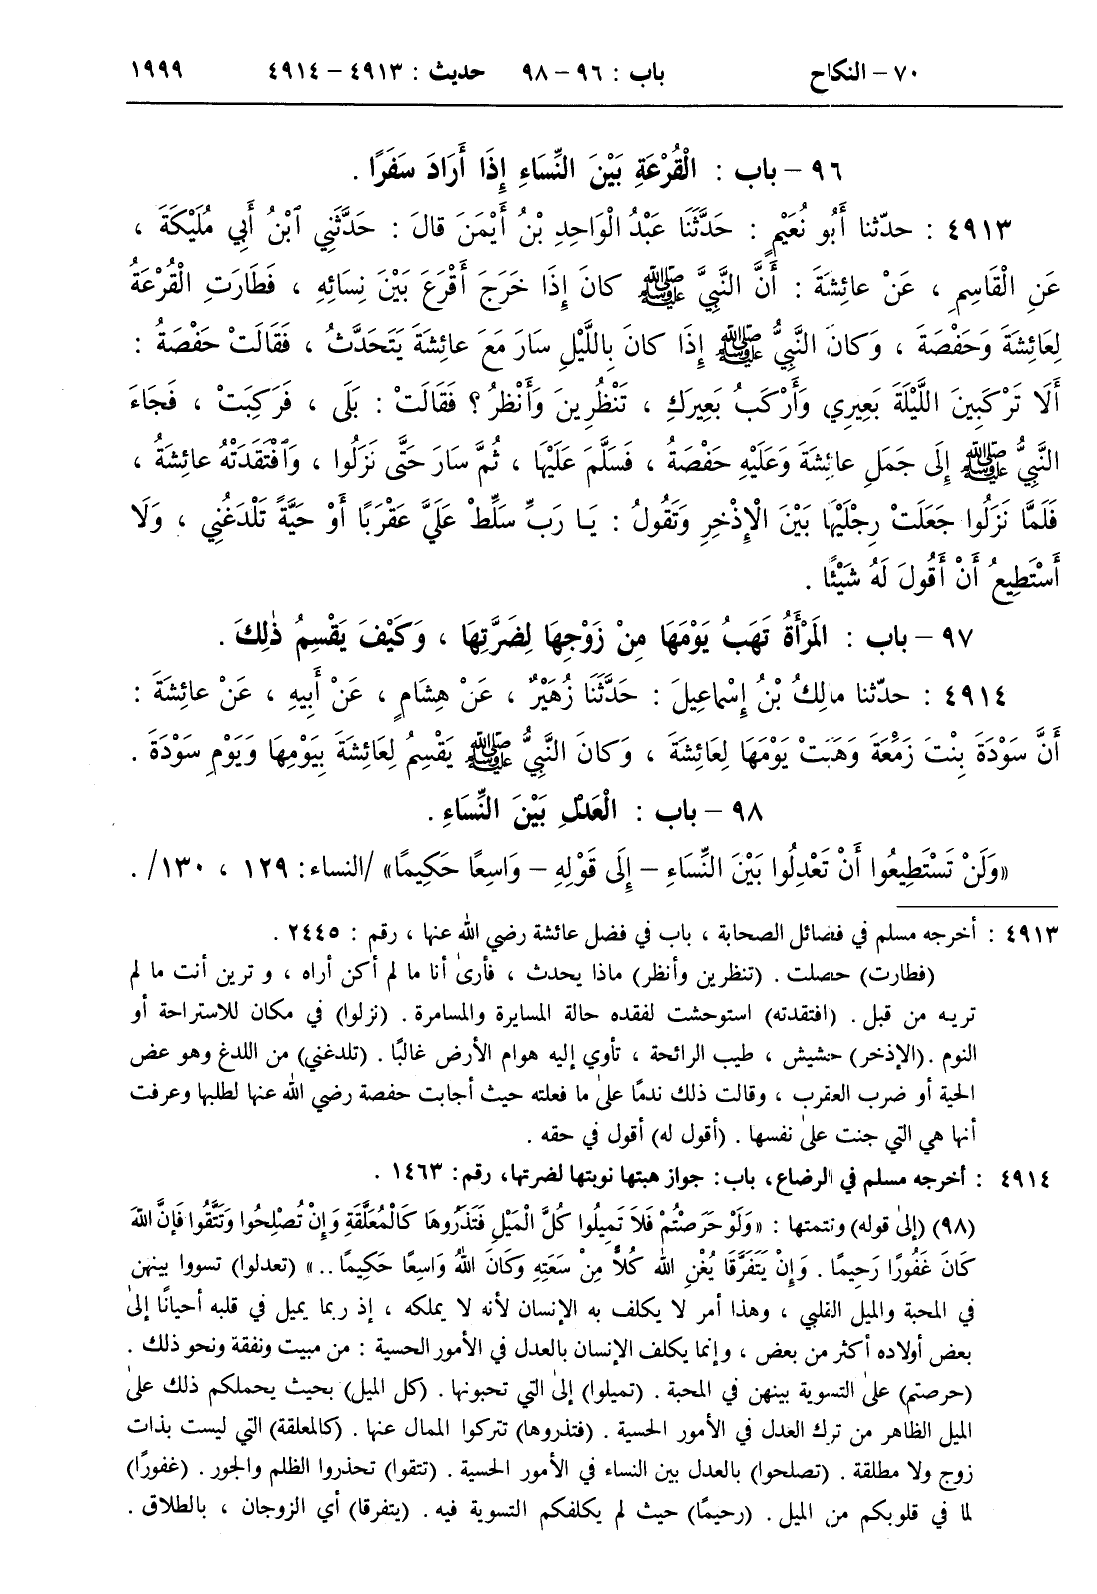 ٧٠ – النكاح باب : ٩٦ – ٩٨ حديث : ٤٩١٣ – ٤٩١٤ ١٩٩٩
٩٦ – باب : الْقُرْعَةِ بَيْنَ النِّسَاءِ إِذَا أَرَادَ سَفَرًا .
٤٩١٣ : حدّثنا أَبُو نُعَيْمٍ : حَدَّثَنَا عَبْدُ الْوَاحِدِ بْنُ أَيْمَنَ قالَ : حَدَّثَنِي ٱبْنُ أَبِي مُلَيْكَةَ ،
عَنِ الْقَاسِمِ ، عَنْ عائِشَةَ : أَنَّ النَّبِيَّ ﷺ كانَ إِذَا خَرَجَ أَقْرَعَ بَيْنَ نِسَائِهِ ، فَطَارَتِ الْقُرْعَةُ
لِعَائِشَةَ وَحَفْصَةَ ، وَكانَ النَّبِيُّ ﷺ إِذَا كانَ بِاللَّيْلِ سَارَ مَعَ عائِشَةَ يَتَحَدَّثُ ، فَقَالَتْ حَفْصَةُ :
أَلَا تَرْكَبِينَ اللَّيْلَةَ بَعِيرِي وَأَرْكَبُ بَعِيرَكِ ، تَنْظُرِينَ وَأَنْظُرُ ؟ فَقَالَتْ : بَلَى ، فَرَكِبَتْ ، فَجَاءَ
النَّبِيُّ ﷺ إِلَى جَمَلِ عائِشَةَ وَعَلَيْهِ حَفْصَةُ ، فَسَلَّمَ عَلَيْهَا ، ثُمَّ سَارَ حَتَّى نَزَلُوا ، وَٱفْتَقَدَتْهُ عائِشَةُ ،
فَلَمَّا نَزَلُوا جَعَلَتْ رِجْلَيْهَا بَيْنَ الْإِذْخِرِ وَتَقُولُ : يَا رَبِّ سَلِّطْ عَلَيَّ عَقْرَبًا أَوْ حَيَّةً تَلْدَغُنِي ، وَلَا
أَسْتَطِيعُ أَنْ أَقُولَ لَهُ شَيْئًا .
٩٧ – باب : المَرْأَةُ تَهَبُ يَوْمَهَا مِنْ زَوْجِهَا لِضَرَّتِهَا ، وَكَيْفَ يَقْسِمُ ذٰلِكَ .
٤٩١٤ : حدّثنا مالِكُ بْنُ إِسْماعِيلَ : حَدَّثَنَا زُهَيْرٌ ، عَنْ هِشَامٍ ، عَنْ أَبِيهِ ، عَنْ عائِشَةَ :
أَنَّ سَوْدَةَ بِنْتَ زَمْعَةَ وَهَبَتْ يَوْمَهَا لِعَائِشَةَ ، وَكانَ النَّبِيُّ ﷺ يَقْسِمُ لِعَائِشَةَ بِيَوْمِهَا وَيَوْمِ سَوْدَةَ .
٩٨ – باب : الْعَدْلِ بَيْنَ النِّسَاءِ .
«وَلَنْ تَسْتَطِيعُوا أَنْ تَعْدِلُوا بَيْنَ النِّسَاءِ – إِلَى قَوْلِهِ – وَاسِعًا حَكِيمًا» /النساء: ١٢٩ ، ١٣٠/ .
٤٩١٣ : أخرجه مسلم في فضائل الصحابة ، باب في فضل عائشة رضي الله عنها ، رقم : ٢٤٤٥ .
(فطارت) حصلت . (تنظرين وأنظر) ماذا يحدث ، فأرىٰ أنا ما لم أكن أراه ، و ترين أنت ما لم
تريـه من قبل . (افتقدته) استوحشت لفقده حالة المسايرة والمسامرة . (نزلوا) في مكان للاستراحة أو
النوم .(الإذخر) حشيش ، طيب الرائحة ، تأوي إليه هوام الأرض غالبًا . (تلدغني) من اللدغ وهو عض
الحية أو ضرب العقرب ، وقالت ذلك ندمًا علىٰ ما فعلته حيث أجابت حفصة رضي الله عنها لطلبها وعرفت
أنها هي التي جنت علىٰ نفسها . (أقول له) أقول في حقه .
٤٩١٤ : أخرجه مسلم في الرضاع، باب: جواز هبتها نوبتها لضرتها، رقم: ١٤٦٣ .
(٩٨) (إلىٰ قوله) وتتمتها : «وَلَوْ حَرَصْتُمْ فَلاَ تَمِيلُوا كُلَّ الْمَيْلِ فَتَذَرُوهَا كَالْمُعَلَّقَةِ وَإِنْ تُصْلِحُوا وَتَتَّقُوا فَإِنَّ اللهَ
كَانَ غَفُورًا رَحِيمًا . وَإِنْ يَتَفَرَّقَا يُغْنِ الله كُلاًّ مِنْ سَعَتِهِ وَكَانَ اللهُ وَاسِعًا حَكِيمًا ..» (تعدلوا) تسووا بينهن
في المحبة والميل القلبي ، وهذا أمر لا يكلف به الإنسان لأنه لا يملكه ، إذ ربما يميل في قلبه أحيانًا إلىٰ
بعض أولاده أكثر من بعض ، وإنما يكلف الإنسان بالعدل في الأمور الحسية : من مبيت ونفقة ونحو ذلك .
(حرصتم) علىٰ التسوية بينهن في المحبة . (تميلوا) إلىٰ التي تحبونها . (كل الميل) بحيث يحملكم ذلك علىٰ
الميل الظاهر من ترك العدل في الأمور الحسية . (فتذروها) تتركوا الممال عنها . (كالمعلقة) التي ليست بذات
زوج ولا مطلقة . (تصلحوا) بالعدل بين النساء في الأمور الحسية . (تتقوا) تحذروا الظلم والجور . (غفورًا)
لما في قلوبكم من الميل . (رحيمًا) حيث لم يكلفكم التسوية فيه . (يتفرقا) أي الزوجان ، بالطلاق .